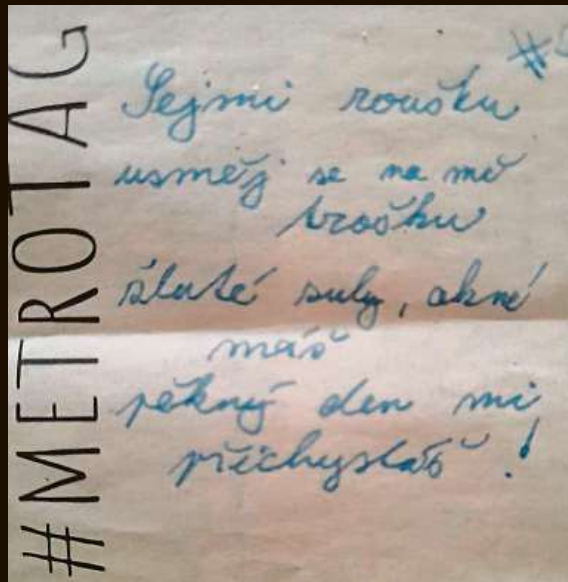 #METROTAG
Sejmi roušku
usměj se na mě
trošku
žluté zuby, akné
máš
pěkný den mi
přichystáš!